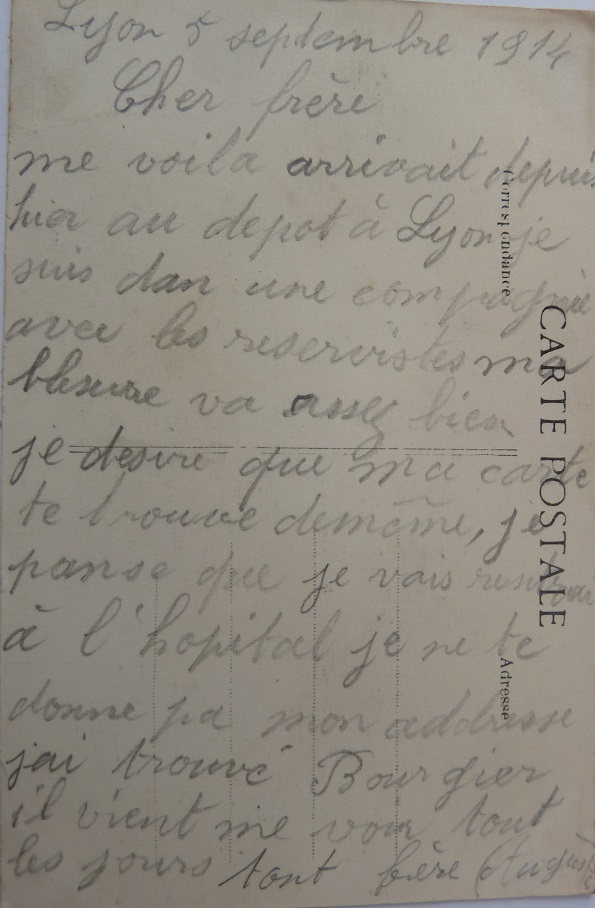 Lyon 5 septembre 1914
Cher frère
me voila arrivait depuis
hier au depot à Lyon je
suis dan une compagnie
avec les reservistes ma
blesure va assez bien
je desire que ma carte
te trouve demême, je
panse que je vais
à l'hopital je ne te
donne pa mon addresse
jai trouvé Bourgier
il vient me voir tout
les jours tont frère (Auguste)
Correspondance
CARTE POSTALE
Adresse